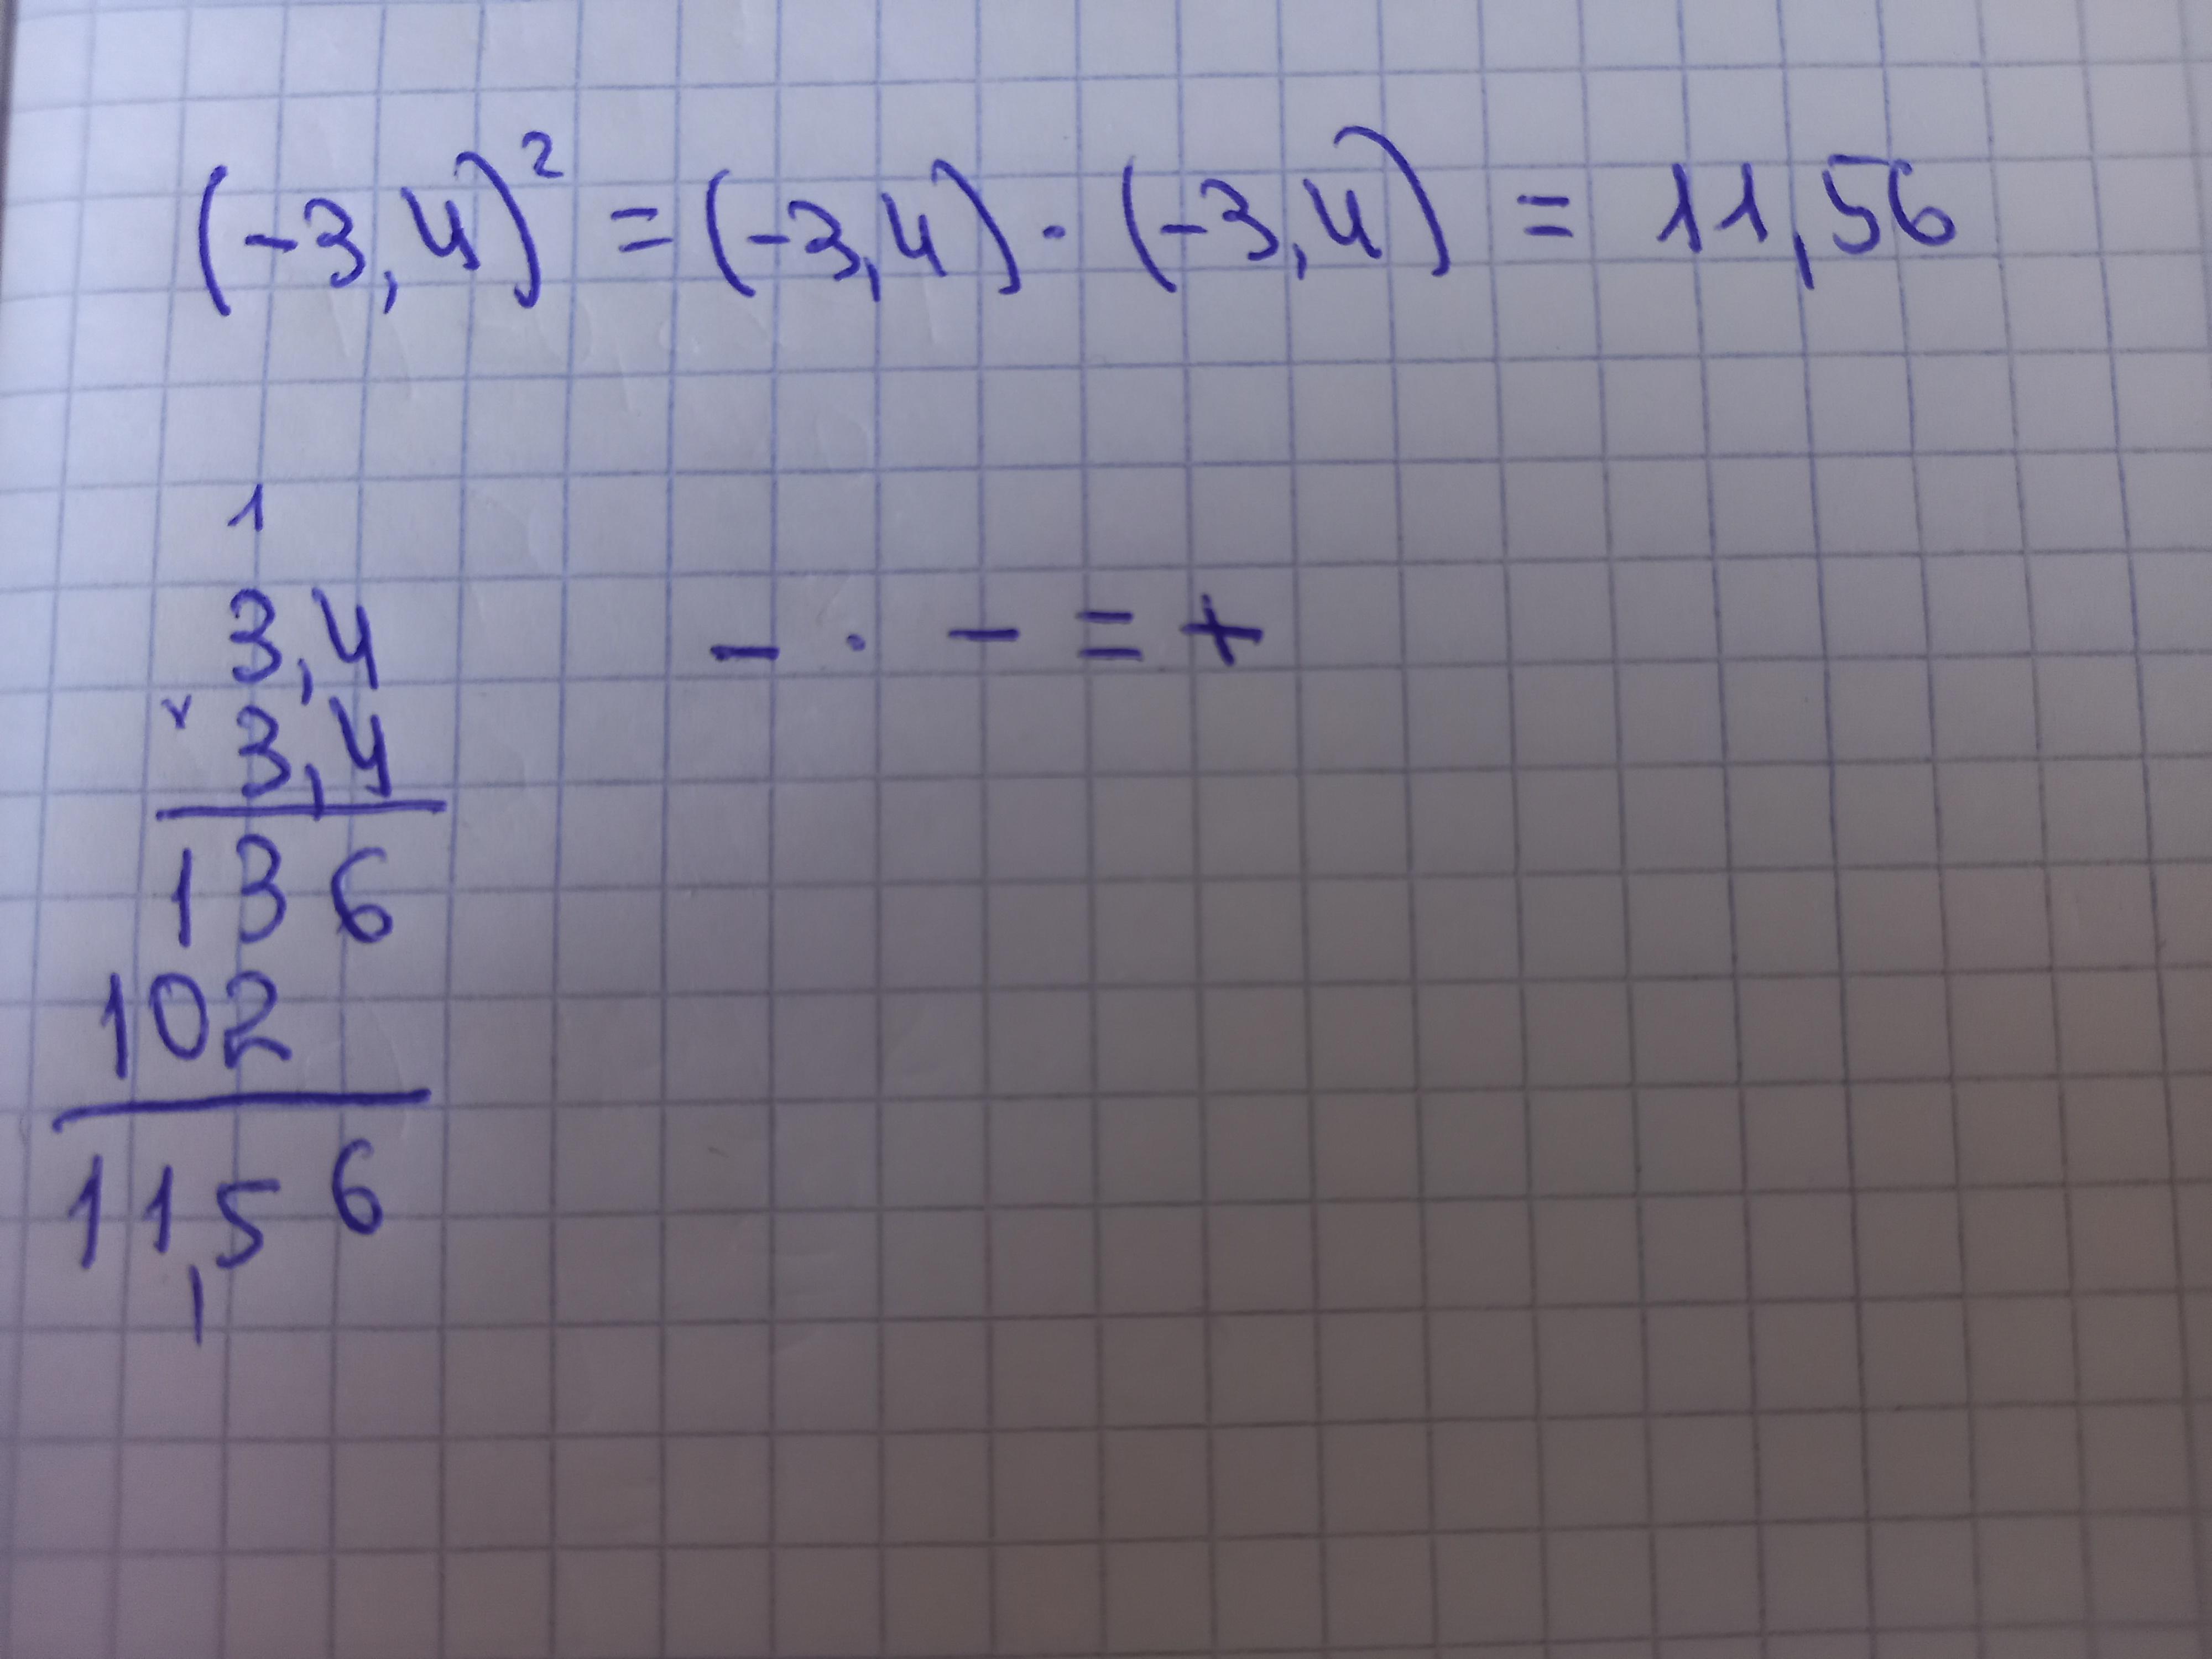 (-3,4)² = (-3,4) · (-3,4) = 11,56
1
3,4
x 3,4
- · - = +
136
102
11,56